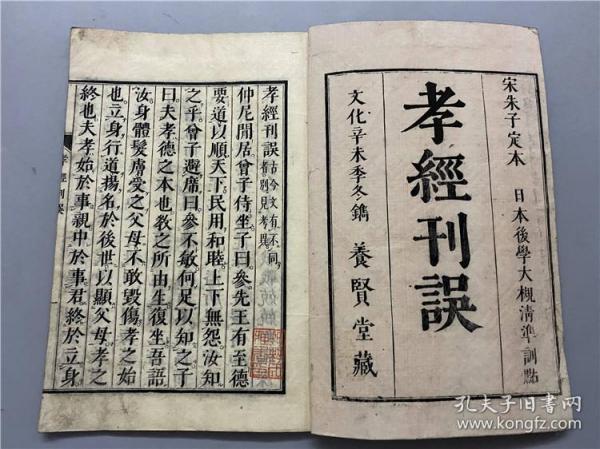 宋朱子定本 日本後學大槻清準訓點
孝經刊誤
文化辛未季冬鐫 養賢堂藏
孝經刊誤古今文有不同者別見考異
仲尼閒居曾子侍坐子曰參先王有至德
要道以順天下民用和睦上下無怨汝知
之乎曾子避席曰參不敏何足以知之子
曰夫孝德之本也教之所由生復坐吾語
汝身體髮膚受之父母不敢毀傷孝之始
也立身行道揚名於後世以顯父母孝之
終也夫孝始於事親中於事君終於立身
孝經刊誤
孔夫子旧书网
www.kongfz.com